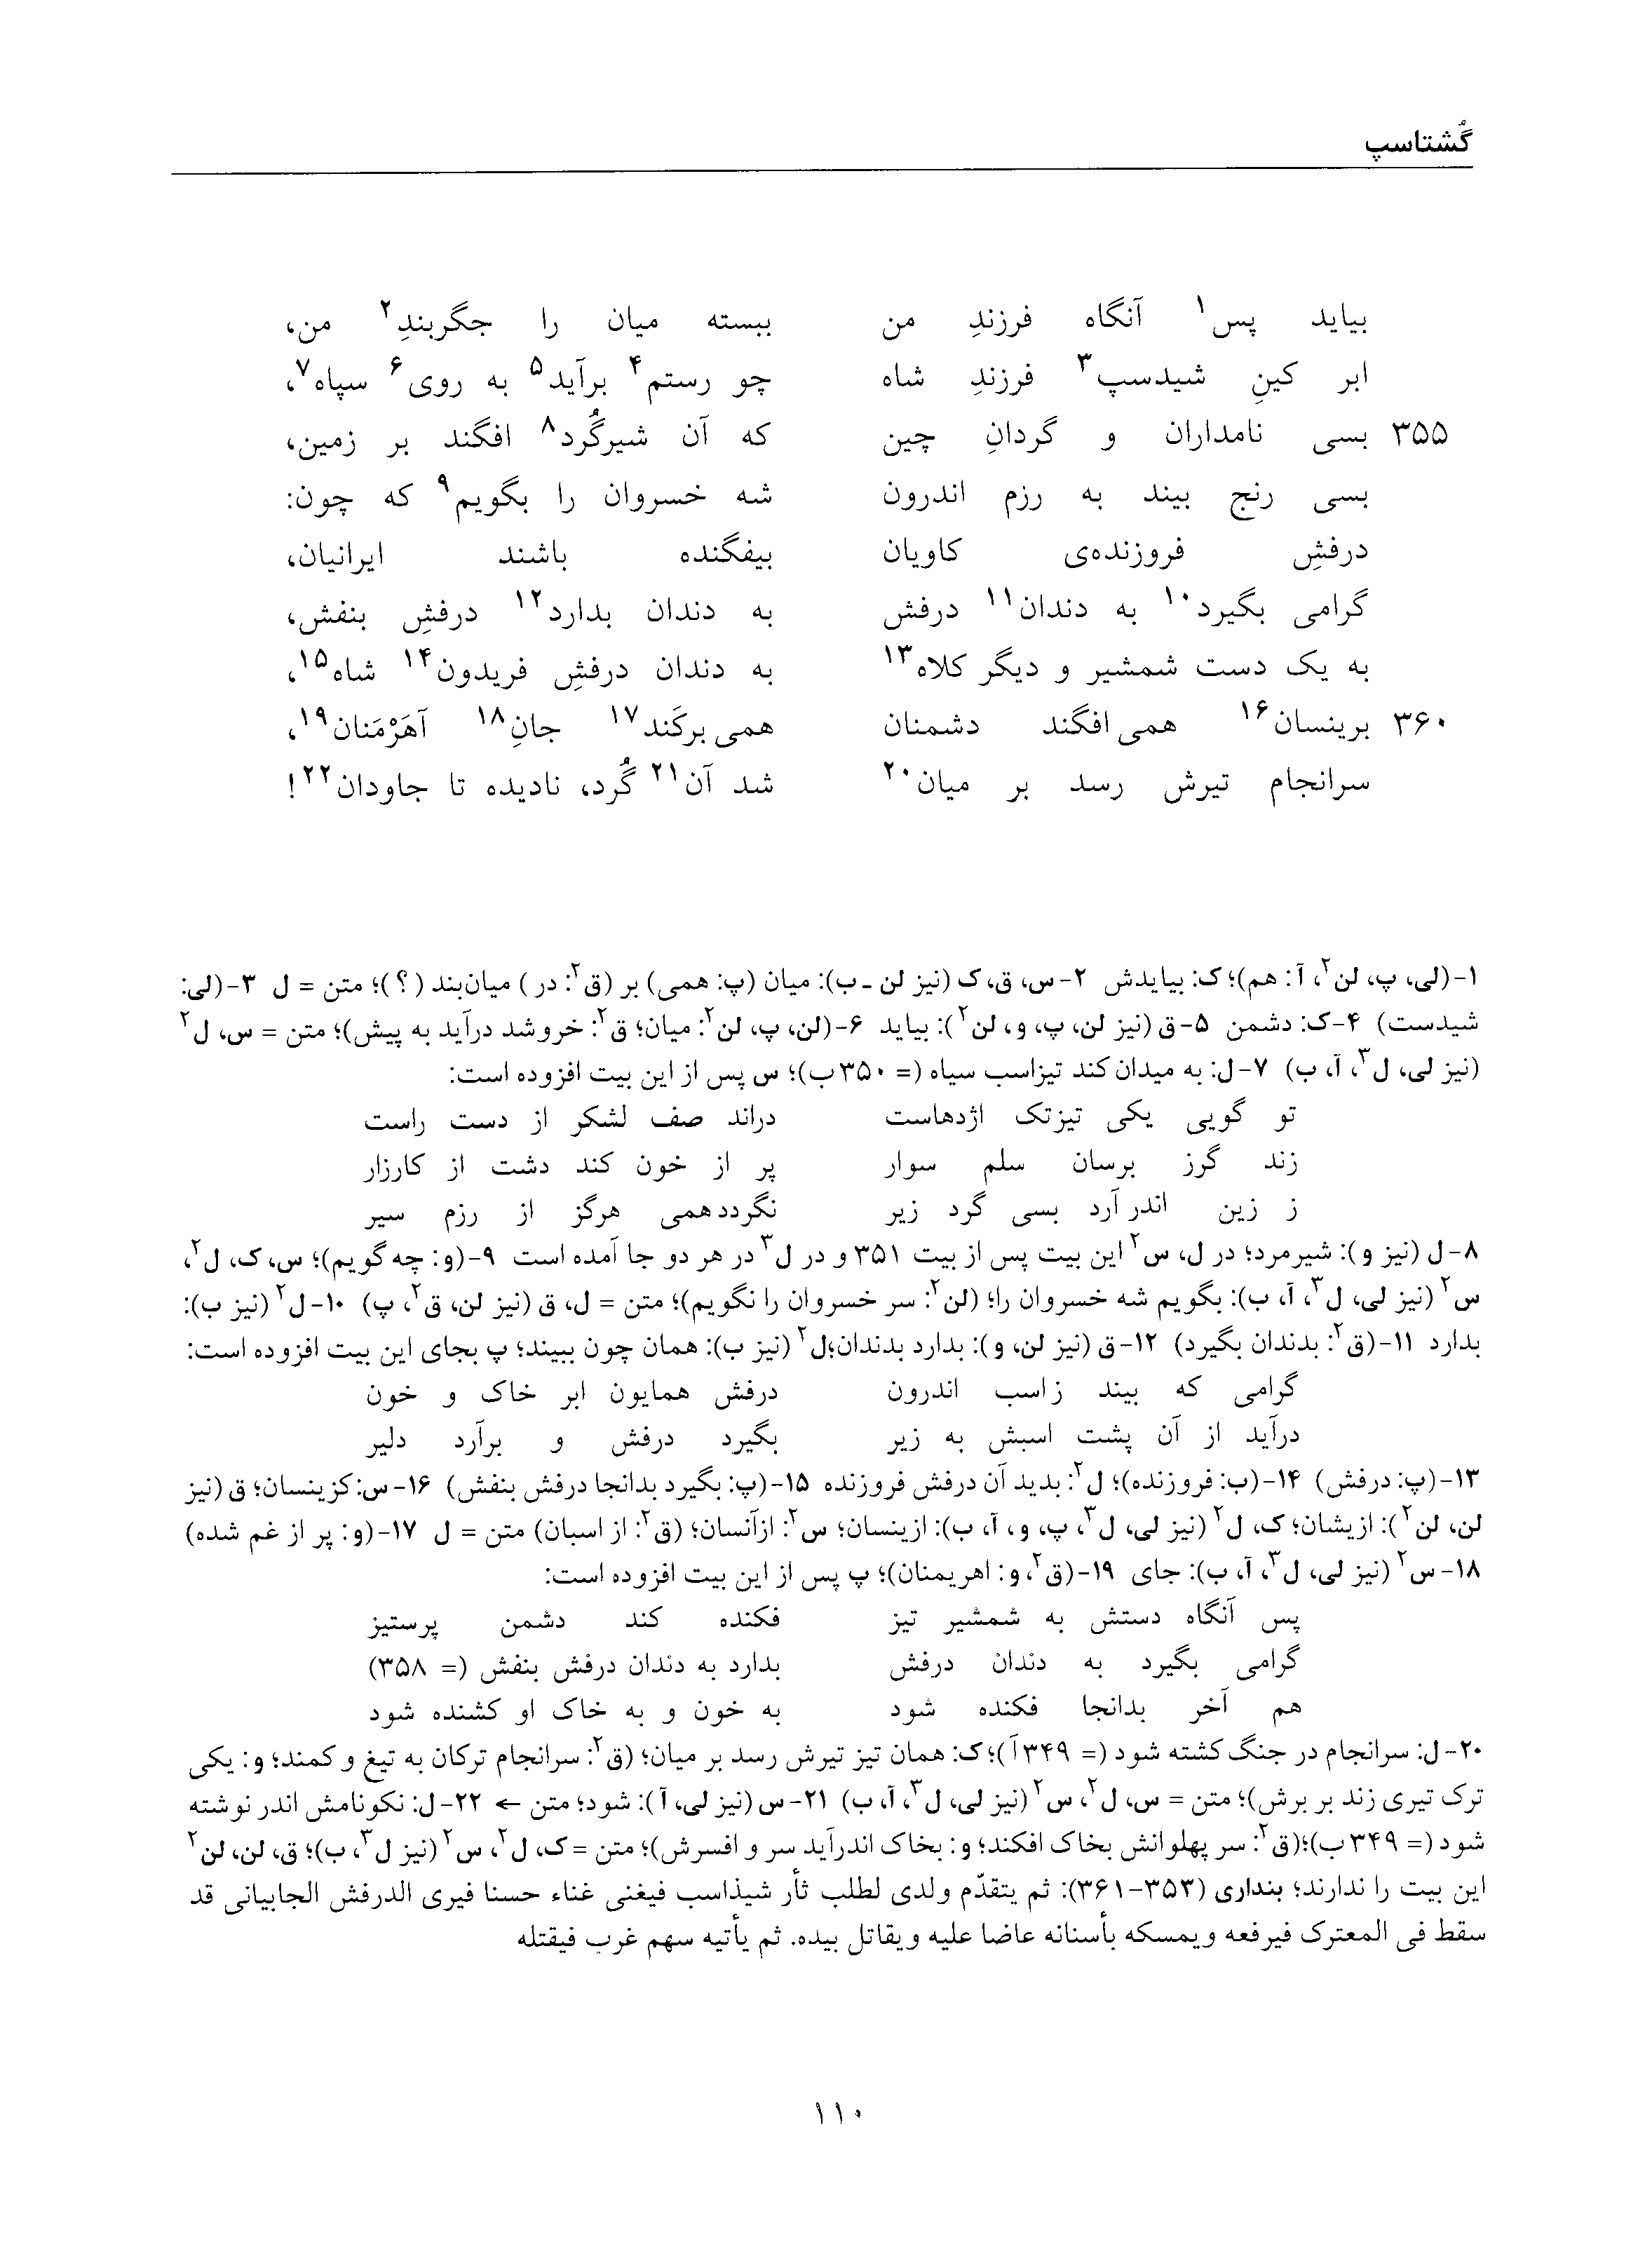 گُشتاسپ
بیاید پس۱ آنگاه فرزندِ من ببسته میان را جگربندِ۲ من،
ابر کینِ شیدسپ۳ فرزندِ شاه چو رستم۴ برآید۵ به روی۶ سپاه۷،
۳۵۵ بسی نامداران و گردانِ چین که آن شیرگُرد۸ افگند بر زمین،
بسی رنج بیند به رزم اندرون شه خسروان را بگویم۹ که چون:
درفشِ فروزنده‌ی کاویان بیفگنده باشند ایرانیان،
گرامی بگیرد۱۰ به دندان۱۱ درفش به دندان بدارد۱۲ درفشِ بنفش،
به یک دست شمشیر و دیگر کلاه۱۳ به دندان درفشِ فریدون۱۴ شاه۱۵،
۳۶۰ برینسان۱۶ همی‌افگند دشمنان همی‌برکَند۱۷ جانِ۱۸ آهَرْمَنان۱۹،
سرانجام تیرش رسد بر میان۲۰ شد آن۲۱ گُرد، نادیده تا جاودان۲۲!
۱-(لی، پ، لن۲، آ: هم)؛ ک: بیایدش ۲-س، ق، ک (نیز لن ـ ب): میان (پ: همی) بر (ق۲: در) میان‌بند (؟)؛ متن = ل ۳-(لی:
شیدست) ۴-ک: دشمن ۵-ق (نیز لن، پ، و، لن۲): بیاید ۶-(لن، پ، لن۲: میان؛ ق۲: خروشد درآید به پیش)؛ متن = س، ل۲
(نیز لی، ل۳، آ، ب) ۷-ل: به میدان کند تیزاسب سیاه (= ۳۵۰ب)؛ س پس از این بیت افزوده است:
تو گویی یکی تیزتک اژدهاست دراند صف لشکر از دست راست
زند گرز برسان سلم سوار پر از خون کند دشت از کارزار
ز زین اندرآرد بسی گرد زیر نگرددهمی هرگز از رزم سیر
۸-ل (نیز و): شیرمرد؛ در ل، س۲ این بیت پس از بیت ۳۵۱ و در ل۳ در هر دو جا آمده است ۹-(و: چه گویم)؛ س، ک، ل۲،
س۲ (نیز لی، ل۳، آ، ب): بگویم شه خسروان را؛ (لن۲: سر خسروان را نگویم)؛ متن = ل، ق (نیز لن، ق۲، پ) ۱۰-ل۲ (نیز ب):
بدارد ۱۱-(ق۲: بدندان بگیرد) ۱۲-ق (نیز لن، و): بدارد بدندان؛ل۲ (نیز ب): همان چون ببیند؛ پ بجای این بیت افزوده است:
گرامی که بیند زاسب اندرون درفش همایون ابر خاک و خون
درآید از آن پشت اسبش به زیر بگیرد درفش و برآرد دلیر
۱۳-(پ: درفش) ۱۴-(ب: فروزنده)؛ ل۲: بدید آن درفش فروزنده ۱۵-(پ: بگیرد بدانجا درفش بنفش) ۱۶-س: کزینسان؛ ق (نیز
لن، لن۲): ازیشان؛ ک، ل۲ (نیز لی، ل۳، پ، و، آ، ب): ازینسان؛ س۲: ازآنسان؛ (ق۲: از اسبان) متن = ل ۱۷-(و: پر از غم شده)
۱۸-س۲ (نیز لی، ل۳، آ، ب): جای ۱۹-(ق۲، و: اهریمنان)؛ پ پس از این بیت افزوده است:
پس آنگاه دستش به شمشیر تیز فکنده کند دشمن پرستیز
گرامی بگیرد به دندان درفش بدارد به دندان درفش بنفش (= ۳۵۸)
هم آخر بدانجا فکنده شود به خون و به خاک او کشنده شود
۲۰-ل: سرانجام در جنگ کشته شود (= ۳۴۹آ)؛ ک: همان تیز تیرش رسد بر میان؛ (ق۲: سرانجام ترکان به تیغ و کمند؛ و: یکی
ترک تیری زند بر برش)؛ متن = س، ل۲، س۲ (نیز لی، ل۳، آ، ب) ۲۱-س (نیز لی، آ): شود؛ متن ← ۲۲-ل: نکونامش اندر نوشته
شود (= ۳۴۹ب)؛(ق۲: سر پهلوانش بخاک افکند؛ و: بخاک اندرآید سر و افسرش)؛ متن = ک، ل۲، س۲ (نیز ل۳، ب)؛ ق، لن، لن۲
این بیت را ندارند؛ بنداری (۳۵۳-۳۶۱): ثم یتقدّم ولدی لطلب ثأر شیذاسب فیغنی غناء حسنا فیری الدرفش الجابیانی قد
سقط فی المعترک فیرفعه ویمسکه بأسنانه عاضا علیه ویقاتل بیده. ثم یأتیه سهم غرب فیقتله
۱۱۰